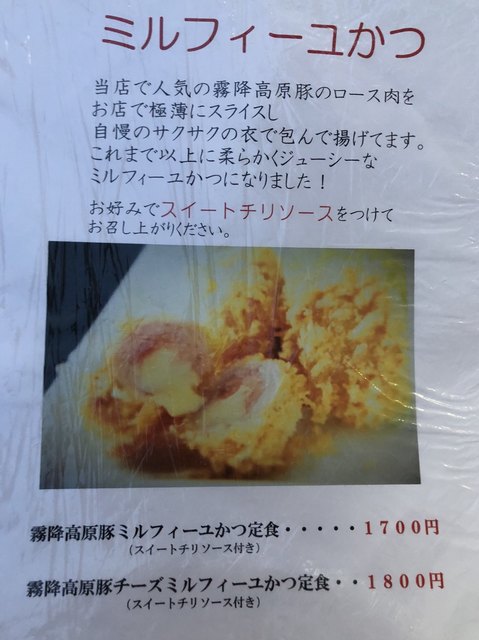 ミルフィーユかつ
当店で人気の霧降高原豚のロース肉を
お店で極薄にスライスし
自慢のサクサクの衣で包んで揚げてます。
これまで以上に柔らかくジューシーな
ミルフィーユかつになりました!
お好みでスイートチリソースをつけて
お召し上がりください。
霧降高原豚ミルフィーユかつ定食・・・・・1700円
(スイートチリソース付き)
霧降高原豚チーズミルフィーユかつ定食・・1800円
(スイートチリソース付き)